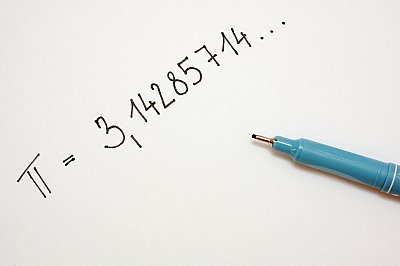 π = 3,14285714...